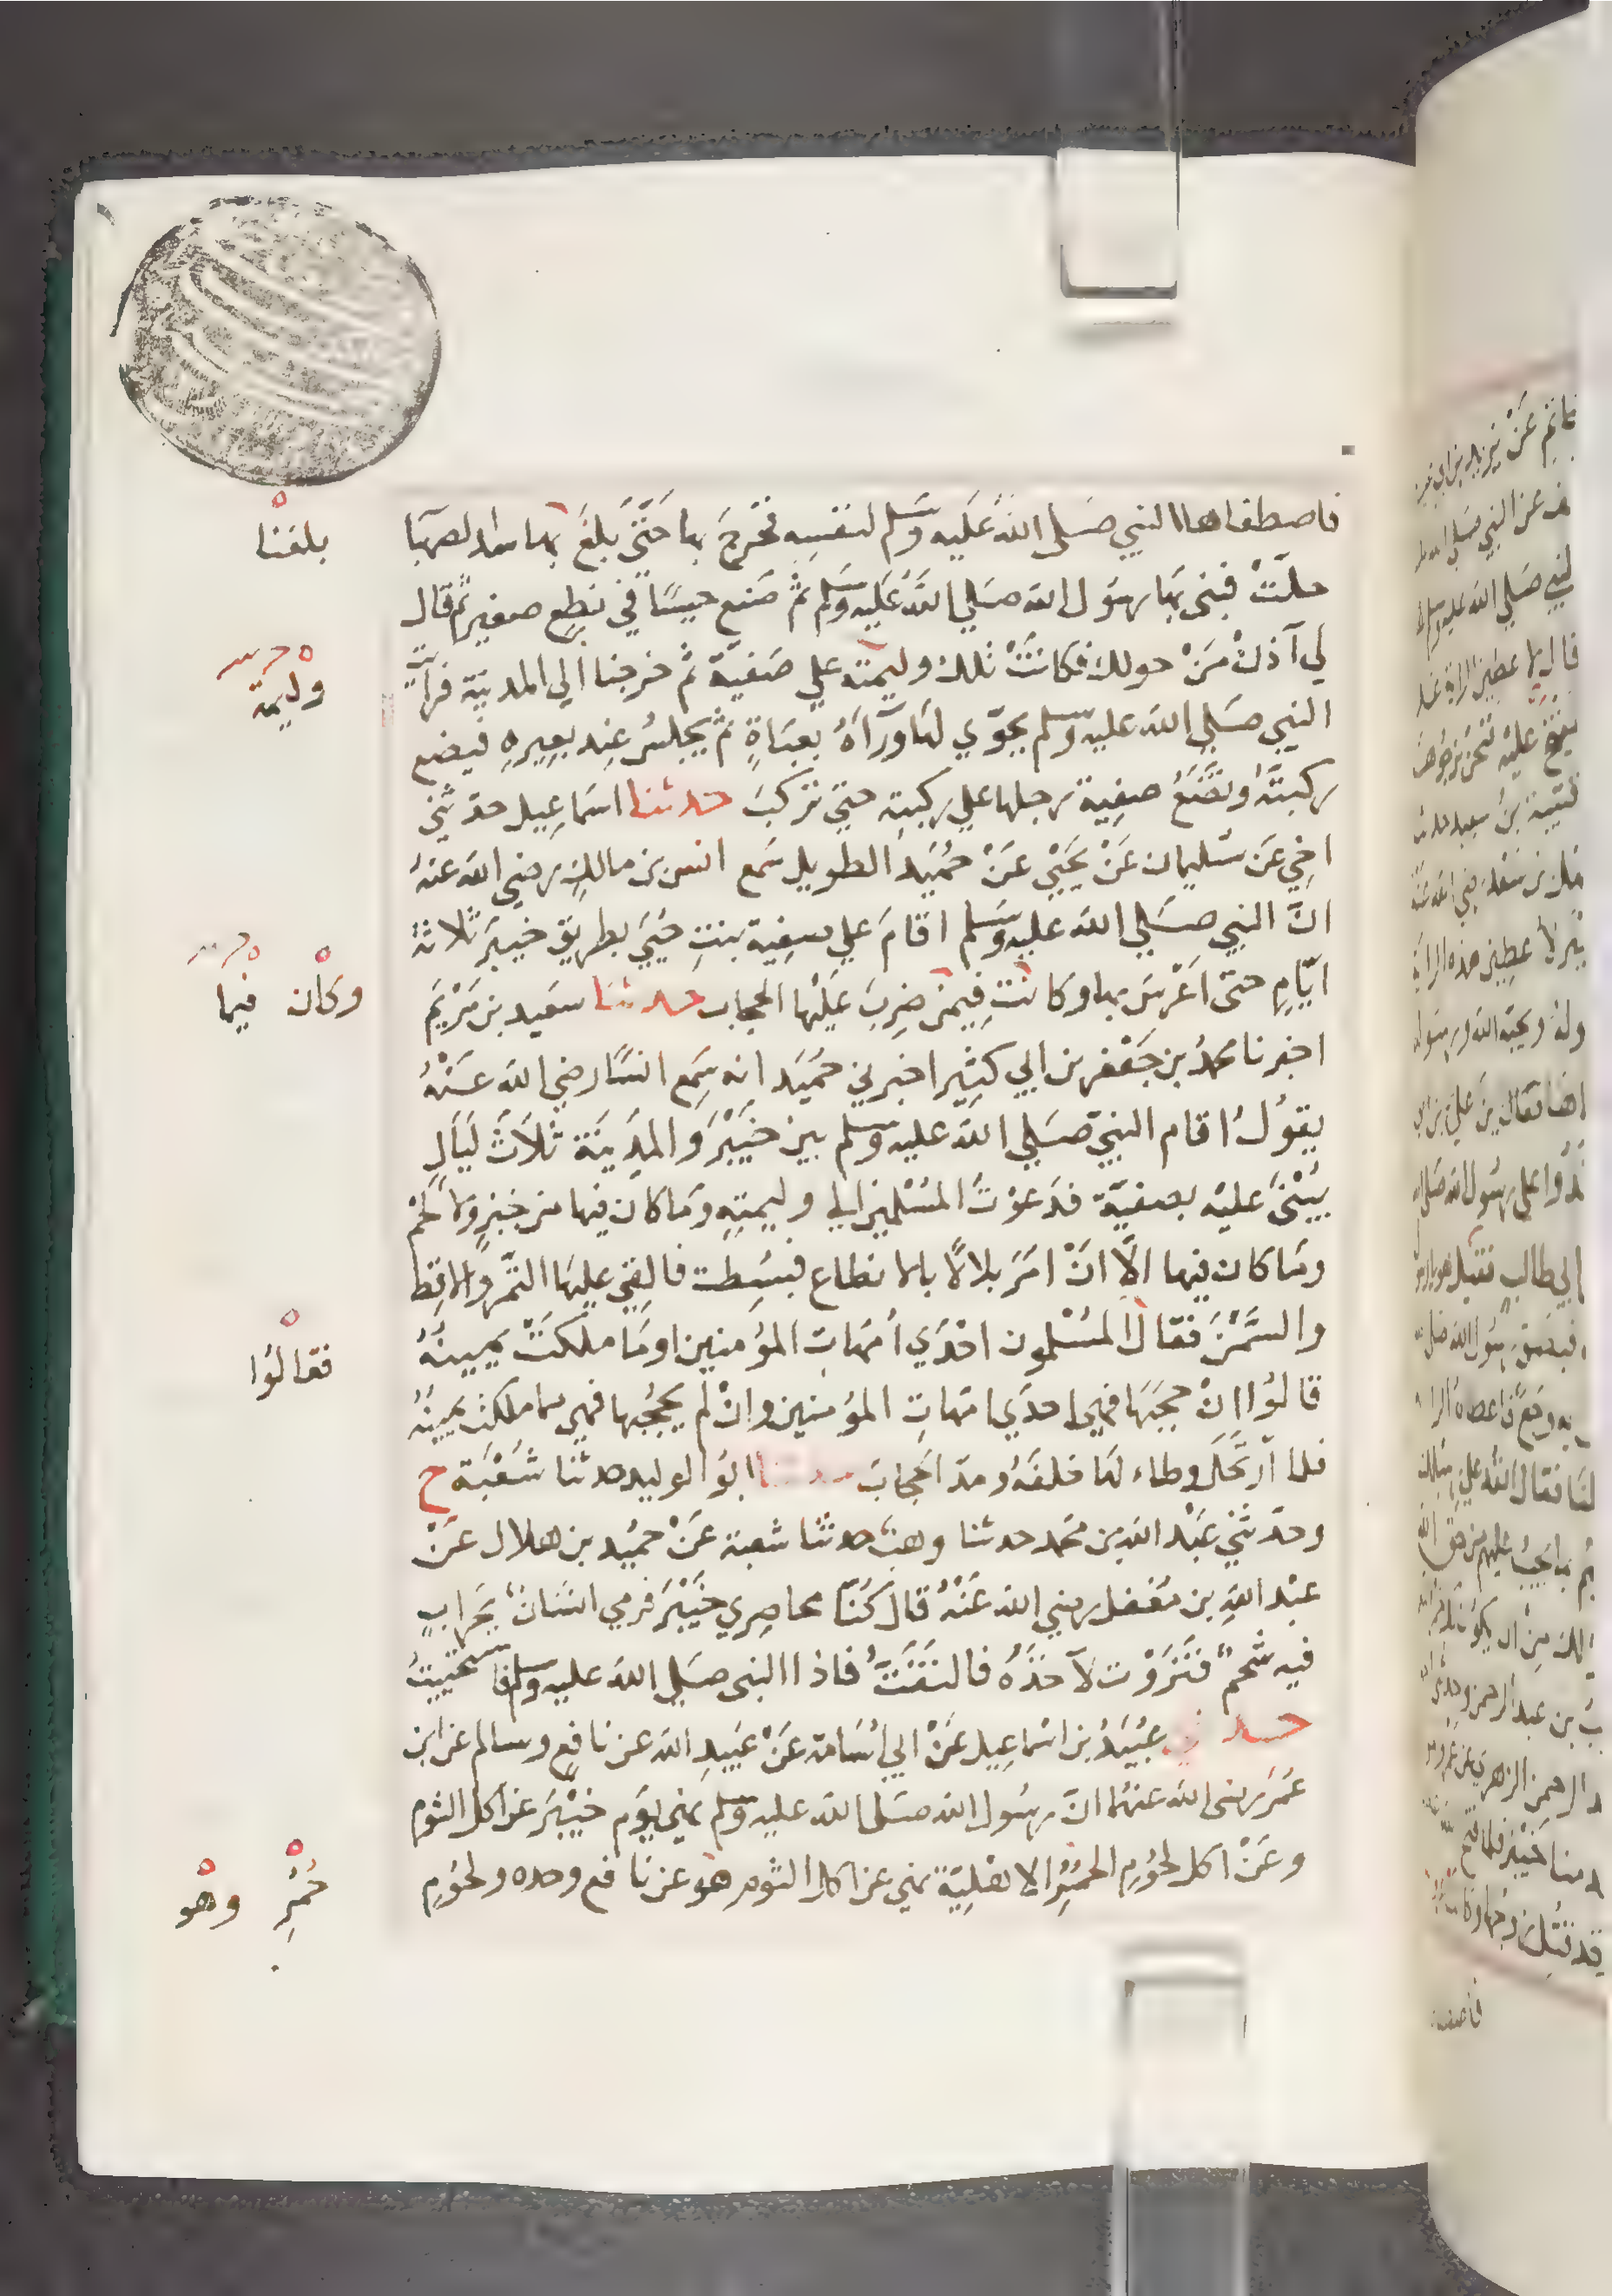 فاصطفاها النبي صَلي اللهُ عَلَيه وَسَلم لنفسِه فخرجَ بها حَتّىَ بلغَ بها سد الصهبا
حلّتْ فبنى بهَا رسُول الله صَلي اللهُ عَليْه وسَلم ثم صَنع حيسًا في نطعٍ صغيرٍ ثم قال
لي آذنْ مَنْ حولك فكانَتْ تلك وليمته علي صَفيّة ثمّ خرجنا الي المدينة فرأيت
النبي صَلي الله عليه وَسلم يحوّي لهَا ورآهُ بعبَاةٍ ثم يجلسُ عِند بعيرِهِ فيضع
ركبتهُ وتضَعُ صفية رجلها علي ركبتِه حتي تركبَ حدثنا اسمَاعِيل حدثني
اخِي عَن سُليمان عَنْ يَحيَي عَنْ حُمَيد الطويل سَمع انس بن مالكٍ رضي الله عَنهُ
انَّ النبي صَلي الله عليه وَسَلم اقامَ علي صفية بنتِ حُيَيٍّ بطريق خيبرَ ثلاثةَ
ايّامٍ حتى اعْرسَ بها وكانتْ فِيمن ضرِبَ عَليْها الحجاب حدثنا سعيد بن مَرْيَم
اخبرنا محمدُ بن جَعْفر بن ابي كثيِر اخبرني حمَيد انه سَمِع انسًا رضي الله عَنْهُ
يقوُلُ اقام النبيّ صَلي الله عليه وَسلم بين خيْبرَ والمدِينَة ثلاَثَ لَيَالٍ
يُبْنىَ عليْه بصفيّة فدَعوْتُ المسْلمِين الي وليمتِهِ ومَا كان فيها من خبزٍ ولا لحمٍ
ومَا كان فيها الاَّ انْ امَرَ بلالاً بالانطاع فبسُطت فالقِي عليهَا التّمر والاقِط
والسّمْنَ فقالَ المسْلمون احْدَي أمهَاتِ المؤمنين اومَا ملكتْ يمينُهُ
قالوُا انْ حجبَهَا فهي احدَي امهاتِ المؤمنين وانْ لم يحجُبها فهي مما ملكت يمينُهُ
فلما ارتحَلَ وطاء لهَا خلفهُ ومدّ الحجابَ حدثنا ابوُ الوليد حدثنا شعْبَة ح
وحدثني عَبْد الله بن محمد حدثنا وهب حدثنا شعبة عَنْ حميُد بن هلال عَنْ
عبْد اللهِ بن مغَفل رضي الله عَنْهُ قال كُنّا محاصِري خيْبَرَ فرمي انسَانٌ بجراب
فيه شحمٌ فنَزَوْت لآخذَهُ فالتفَتُّ فاذا النبى صَلي اللهُ عليه وسلم فاستحييتُ
حدثني عبُيَدُ بن اسْماعِيل عَنْ ابي اُسَامة عَنْ عُبَيدِ الله عن نافعٍ وسالم عن ابن
عمَرَ رضى الله عنهُمَا انّ رسُول الله صَلى الله عليه وَسلم نهي يوَم خيْبَرَ عن اكل الثوم
وعَنْ اكل لحوُمِ الحُمُرِ الاهْليَة نهي عن اكل الثوم هو عن نافع وحده ولحوُمِ
بلغنا
وليمة
وكان فيما
فقالوُا
حُمُرِ وهْو